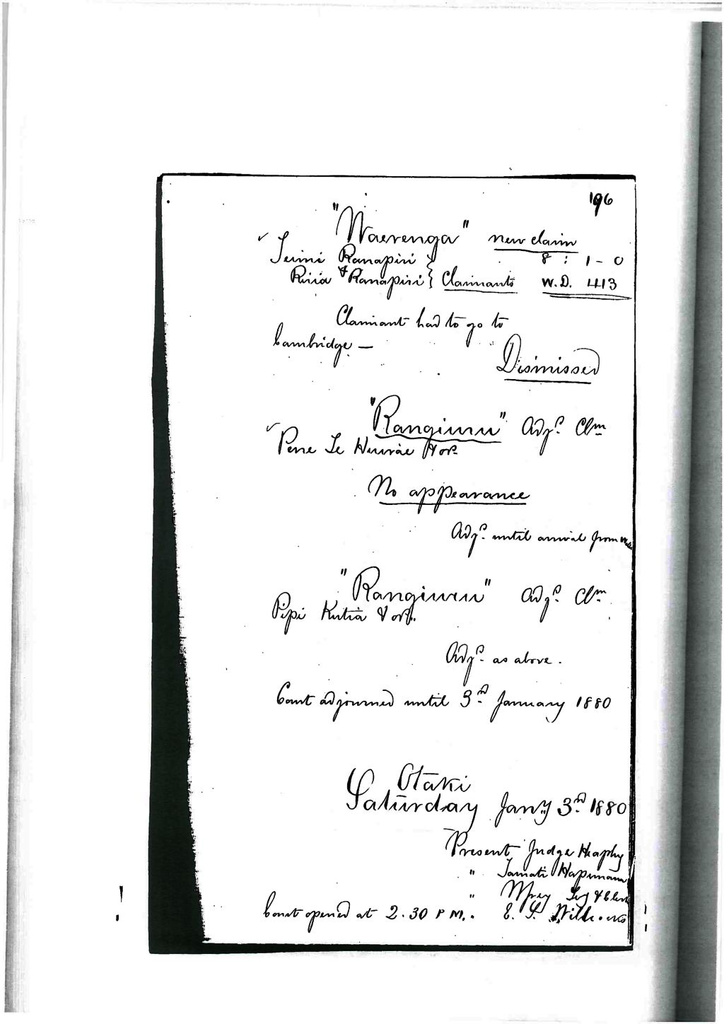 196
"Waerenga" new claim
Ranapiri 8 : 1 - 0
& Ranapiri } Claimants W.D. 413
Claimant had to go to
Cambridge —
Dismissed
"Rangiuru" Adjd. Clm
Pene Te Hor.
No appearance
Adjd. until arrival from
"Rangiuru" Adjd. Clm
Pipi Kutia & ors.
Adjd. as above.
Court adjourned until 3rd January 1880
Otaki
Saturday Jany 3rd 1880
Present Judge Heaphy
" Tamati
" &
Court opened at 2.30 P.M. E. S. Willcocks